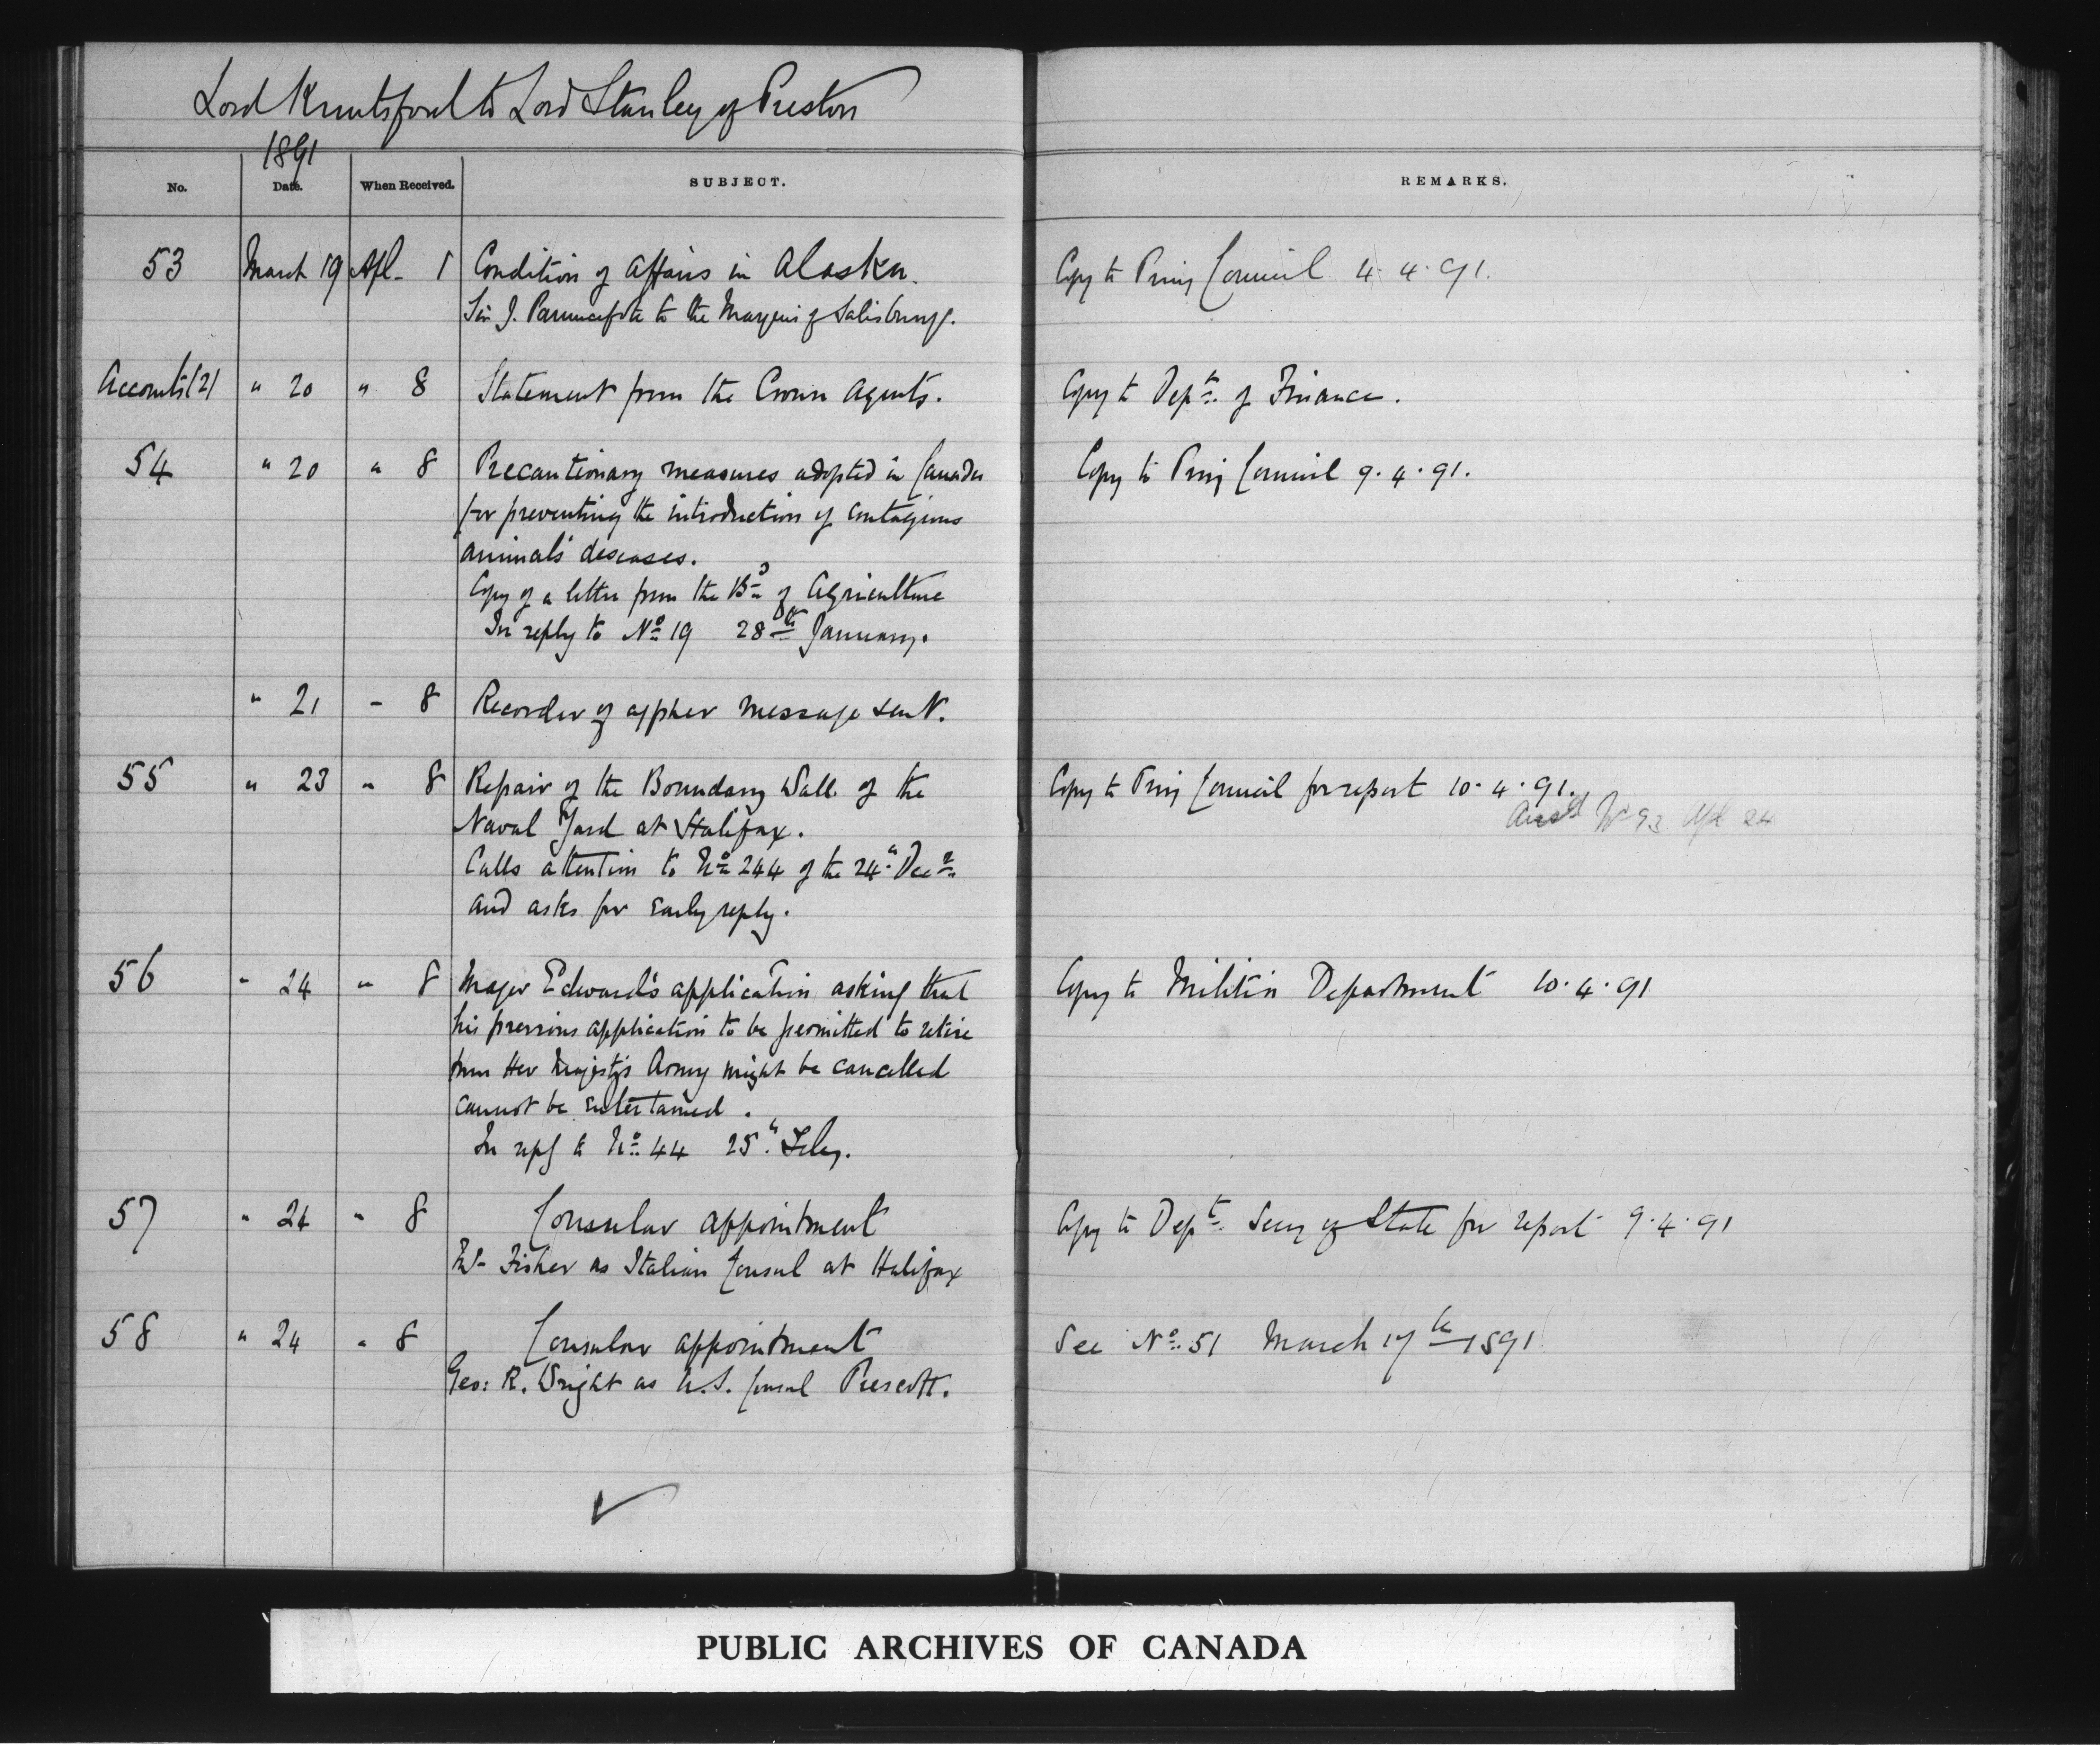 Lord Knutsford to Lord Stanley of Preston
1891
No. Date. When Received. SUBJECT. REMARKS.
53 March 19 Apl. 1 Condition of Affairs in Alaska. Copy to Privy Council 4.4.91.
Sir J. Pauncefote to the Marquis of Salisbury.
Accounts (2) " 20 " 8 Statement from the Crown Agents. Copy to Dept. of Finance.
54 " 20 " 8 Precautionary measures adopted in Canada Copy to Privy Council 9.4.91.
for preventing the introduction of contagious
animals' diseases.
Copy of a letter from the Bd of Agriculture
In reply to No 19 28th January.
" 21 " 8 Recorder of cypher message sent.
55 " 23 " 8 Repair of the Boundary Wall of the Copy to Privy Council for report 10.4.91.
Naval Yard at Halifax. Ansd No 93 Apl 24
Calls attention to No 244 of the 24" Decr
and asks for early reply.
56 " 24 " 8 Major Edward's application asking that Copy to Militia Department 10.4.91
his previous application to be permitted to retire
from Her Majesty's Army might be cancelled
cannot be entertained.
In reply to No 44 25" Feby.
57 " 24 " 8 Consular appointment Copy to Dept. Secy of State for report 9.4.91
Fisher as Italian Consul at Halifax
58 " 24 " 8 Consular appointment See No. 51 March 17th 1891
Geo: R. Wright as U.S. Consul Prescott.
PUBLIC ARCHIVES OF CANADA